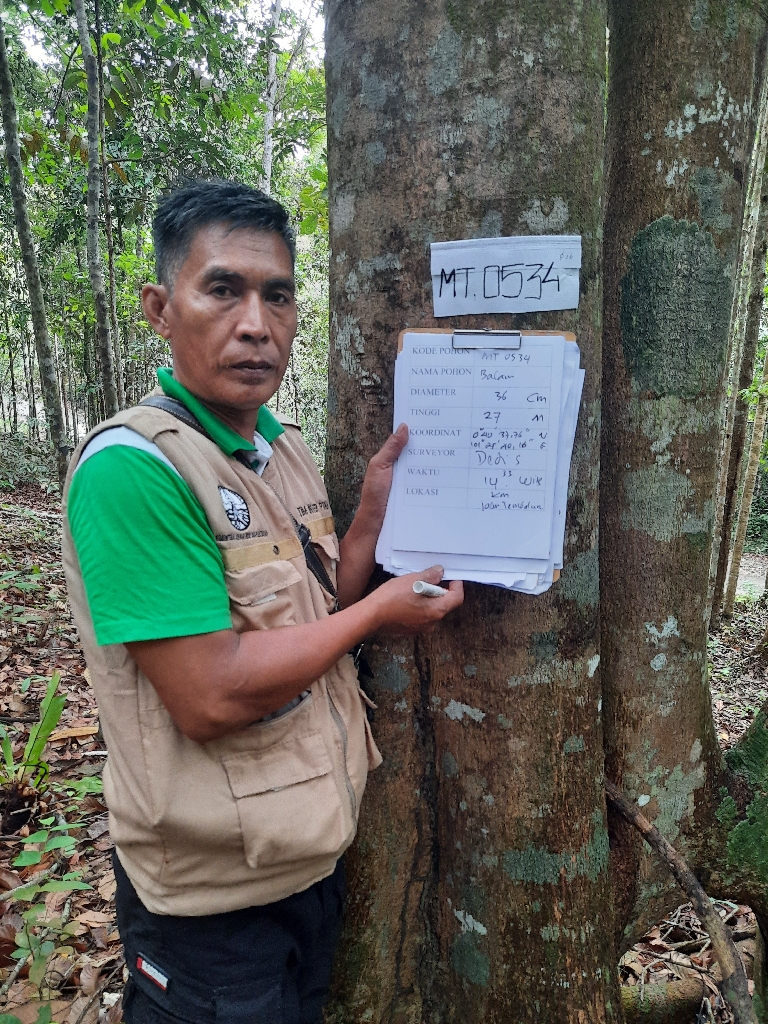 MT. 0534
KODE POHON MT 0534
NAMA POHON Balam
DIAMETER 36 Cm
TINGGI 27 M
KOORDINAT 0° 40' 37,76" N
101° 28' 20,16" E
SURVEYOR Dedi s
WAKTU 14 33 WIB
LOKASI Km